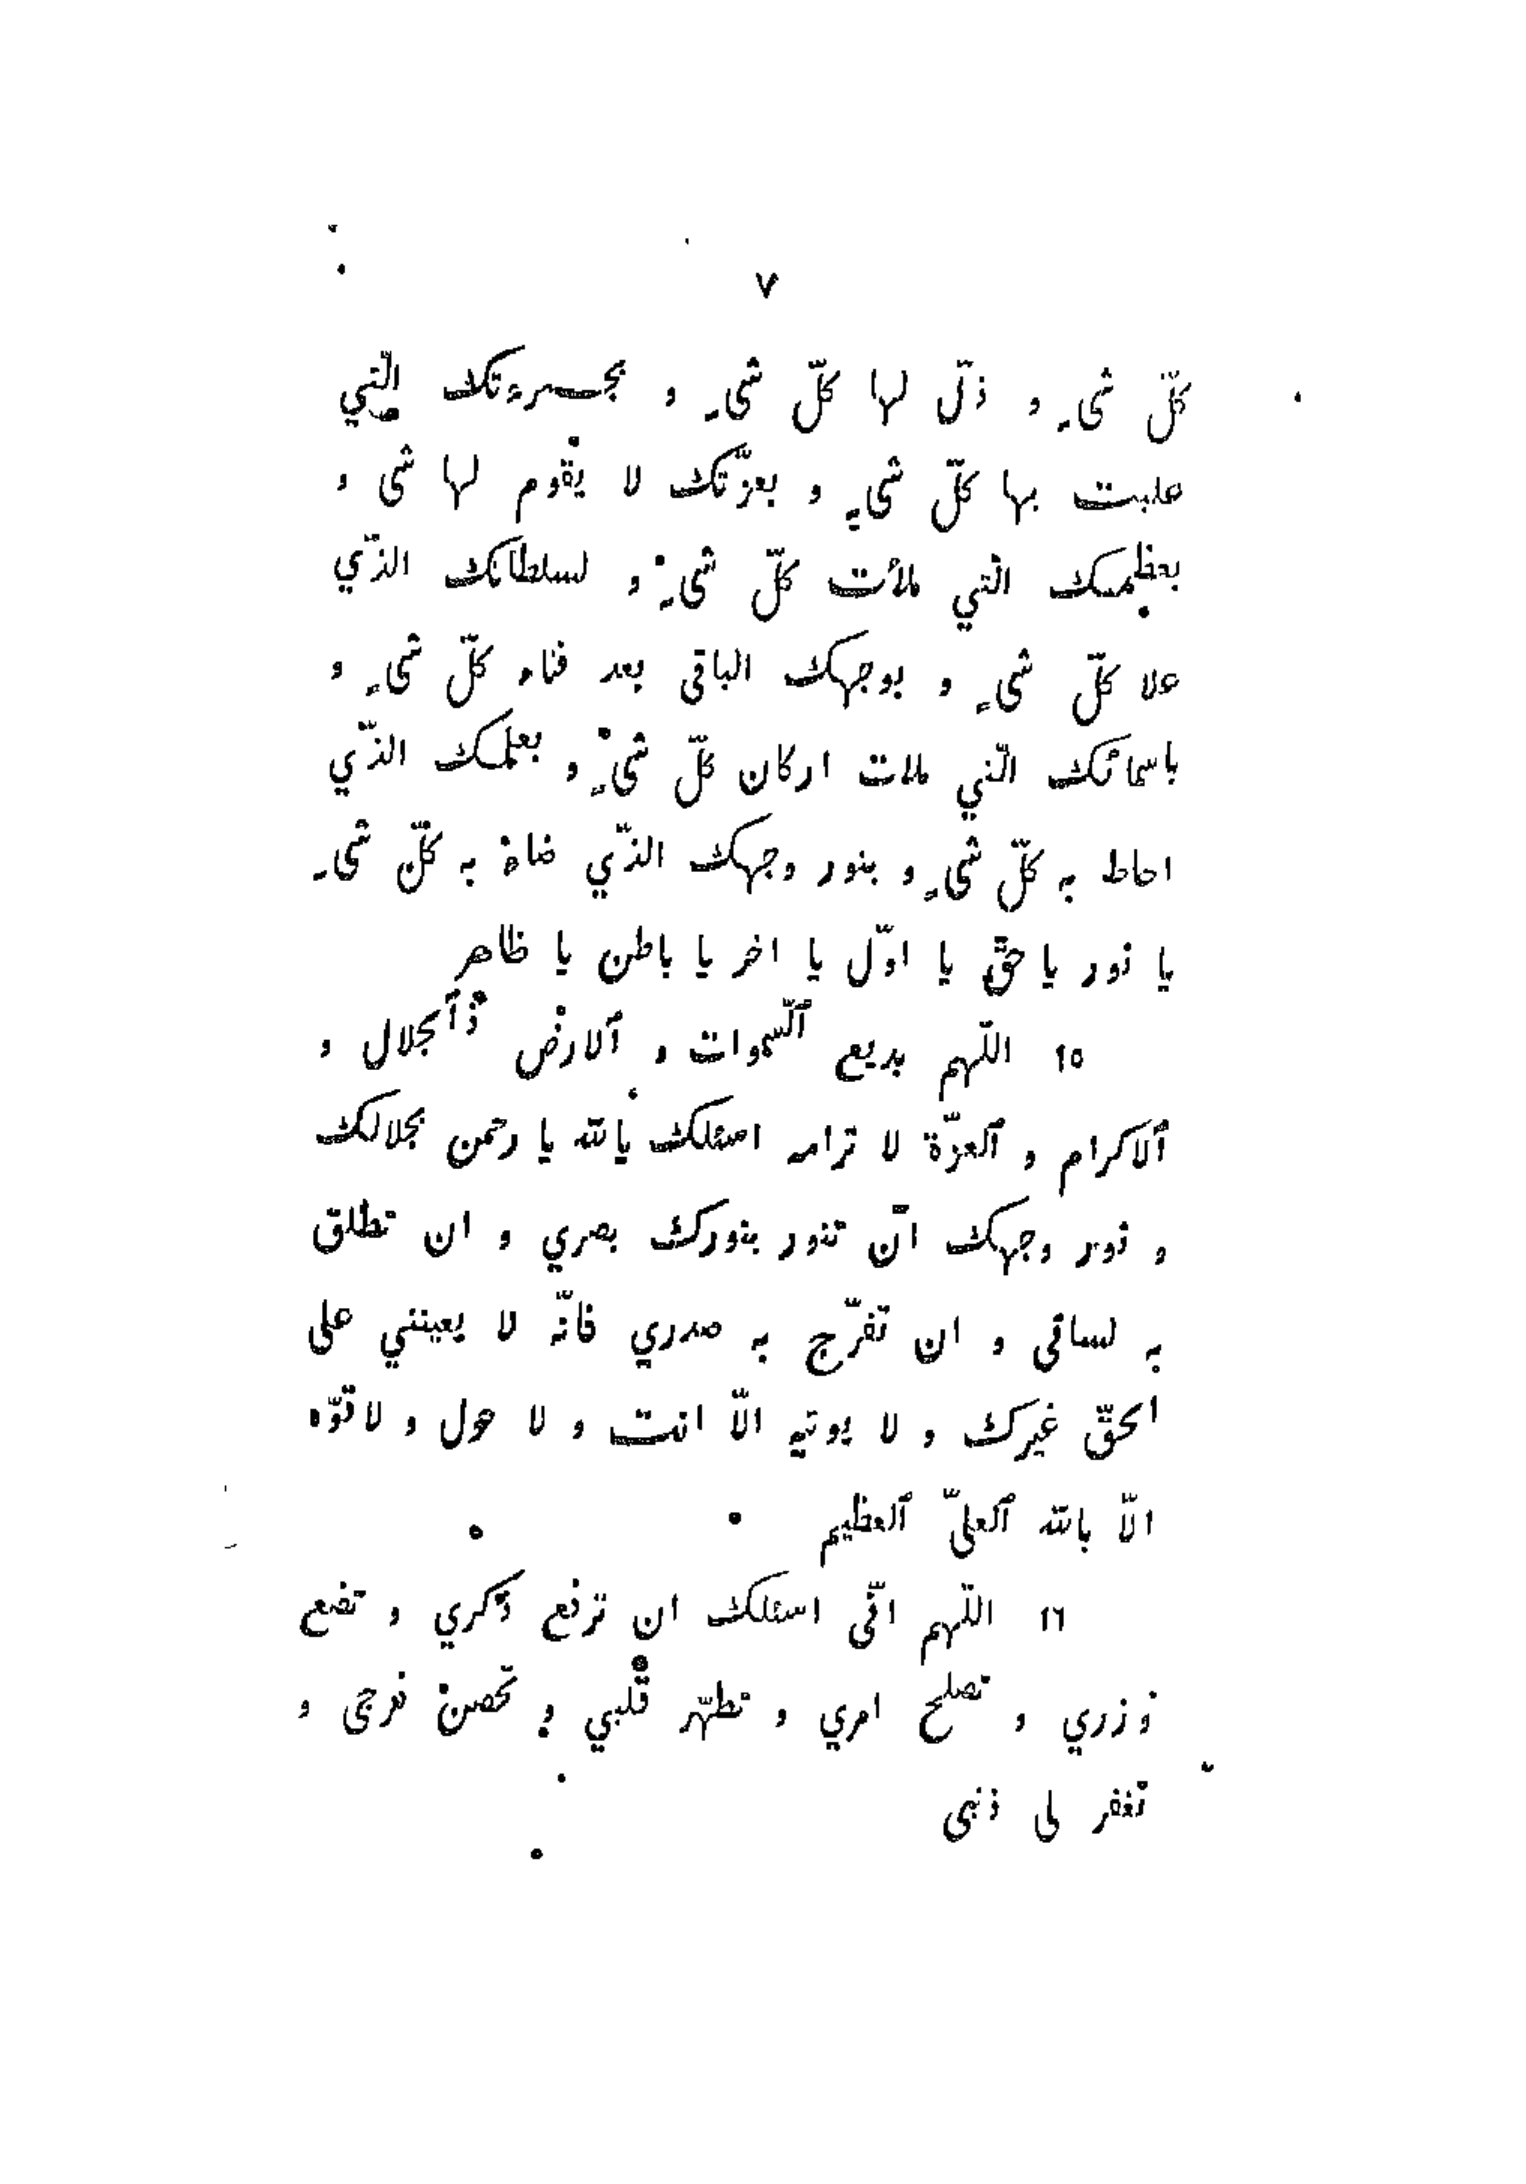 ٧
كلّ شىءٍ و ذلّ لها كلّ شىءٍ و بجبروتك الّتي
غلبت بها كلّ شىءٍ و بعزّتك لا يقوم لها شى و
بعظمتك الّتي ملأت كلّ شىءٍ و لسلطانك الذّي
علا كلّ شىءٍ و بوجهك الباقى بعد فناء كلّ شىءٍ و
باسمائك الّتي ملات اركان كلّ شىءٍ و بعلمك الذّي
احاط به كلّ شىءٍ و بنور وجهك الذّي ضاء به كلّ شىءٍ
يا نور يا حقّ يا اوّل يا اخر يا باطن يا ظاهر
١٥ اللّهم بديع ٱلسّموات و ٱلارض ذٱلجلال و
ٱلاكرام و ٱلعزّة لا ترامه اسئلك يالله يا رحمن بجلالك
و نور وجهك انّ تنور بنورك بصري و ان تطلق
به لسانى و ان تفرّج به صدري فانّه لا يعينني على
الحقّ غيرك و لا يوتيه الّا انت و لا حول و لا قوّه
الّا بالله ٱلعلىّ ٱلعظيم
١٦ اللّهم انّى اسئلك ان ترفع ذكري و تضع
وزري و تصلح امري و تطهّر قلبي و تحصن فرجى و
تغفر لى ذنبى